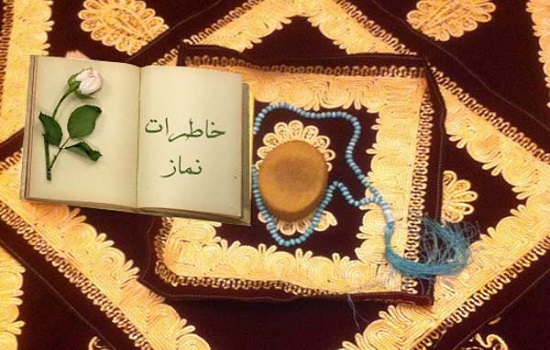 خاطرات
نماز